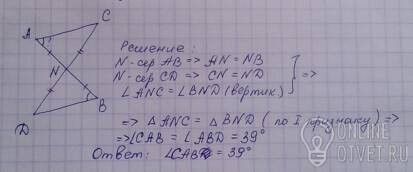 C
A
N
B
D
Решение:
N-сер AB => AN = NB
N-сер CD => CN = ND
∠ANC = ∠BND (вертик)
=>
=> △ANC = △BND (по I признаку) =>
=> ∠CAB = ∠ABD = 39°
Ответ: ∠CAB = 39°
ONLINE
OTVET.RU